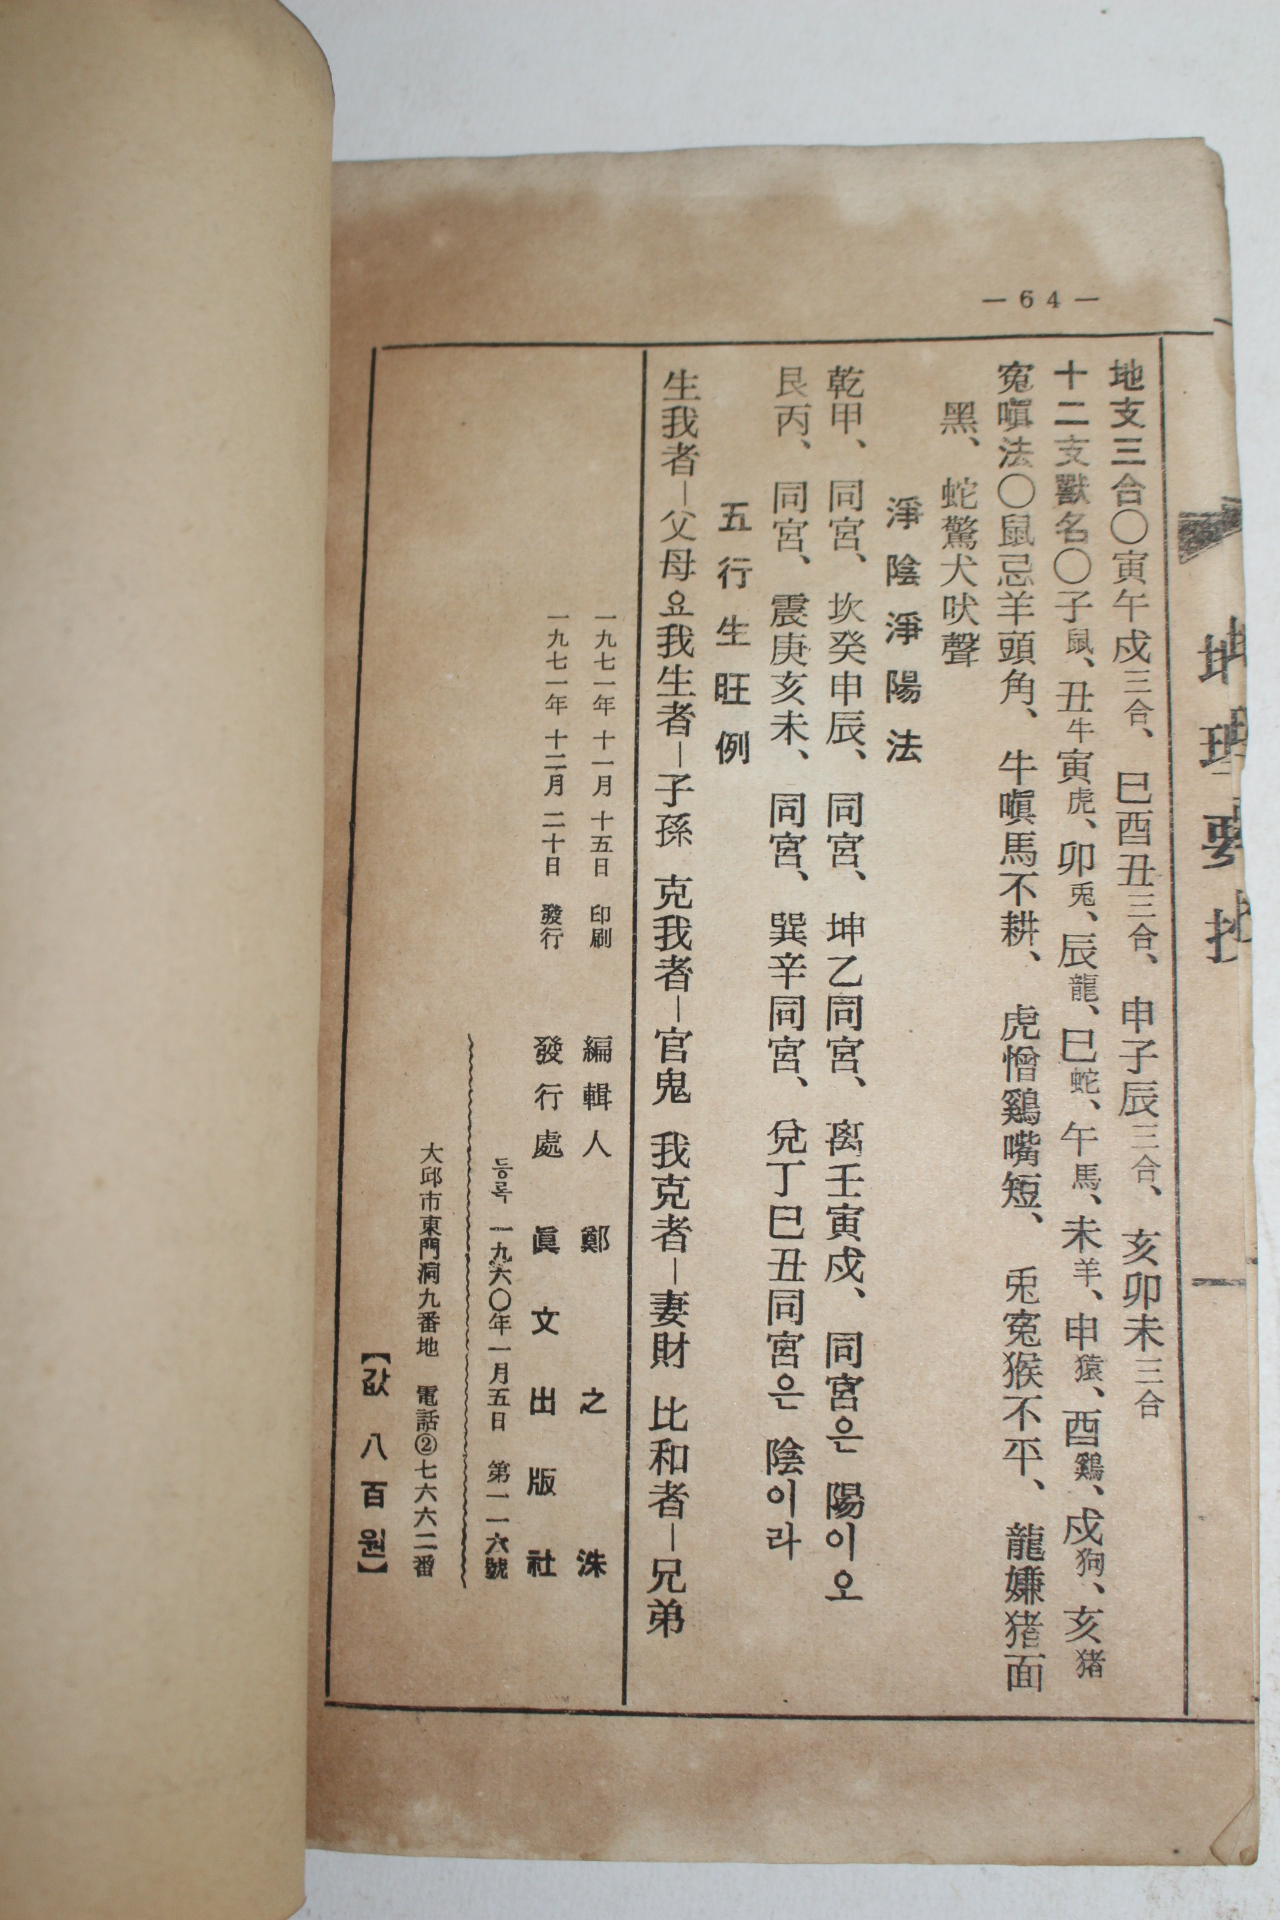 — 64 —
地理要抄
地支三合〇寅午戍三合、巳酉丑三合、申子辰三合、亥卯未三合
十二支獸名〇子鼠、丑牛寅虎、卯兎、辰龍、巳蛇、午馬、未羊、申猿、酉鷄、戍狗、亥猪
寃嗔法〇鼠忌羊頭角、牛嗔馬不耕、虎憎鷄嘴短、兎寃猴不平、龍嫌猪面
黑、蛇驚犬吠聲
淨陰淨陽法
乾甲、同宮、坎癸申辰、同宮、坤乙同宮、离壬寅戍、同宮은 陽이오
艮丙、同宮、震庚亥未、同宮、巽辛同宮、兌丁巳丑同宮은 陰이라
五行生旺例
生我者—父母요我生者—子孫 克我者—官鬼 我克者—妻財 比和者—兄弟
一九七一年 十一月 十五日 印刷
一九七一年 十二月 二十日 發行
編輯人 鄭之洙
發行處 眞文出版社
등록 一九六〇年一月五日 第一一六號
大邱市東門洞九番地 電話②七六六二番
【값 八百원】